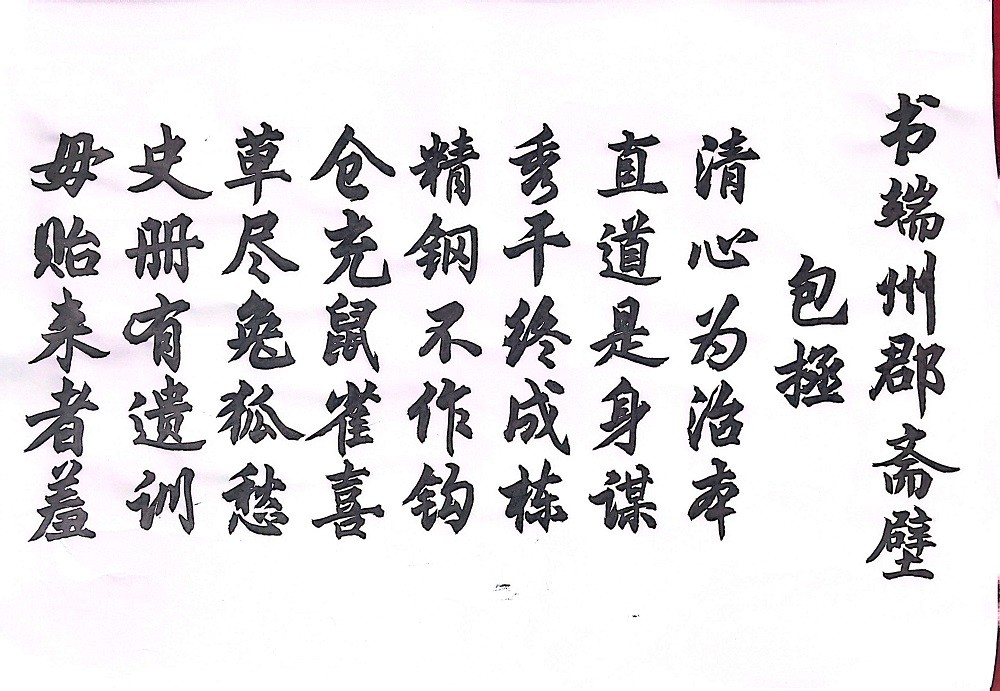 书端州郡斋壁
包拯
清心为治本
直道是身谋
秀干终成栋
精钢不作钩
仓充鼠雀喜
草尽兔狐愁
史册有遗训
毋贻来者羞